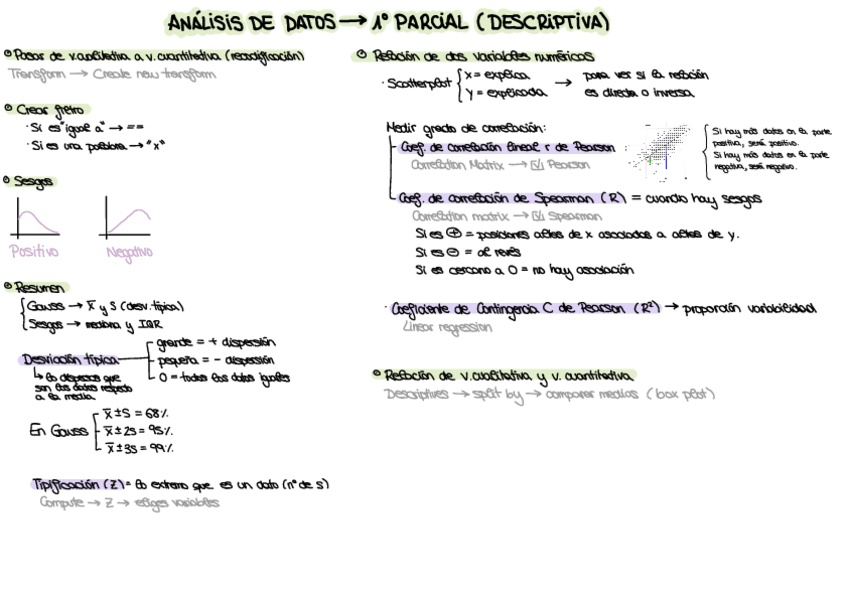 ANÁLISIS DE DATOS → 1º PARCIAL (DESCRIPTIVA)
Pasar de v.cualitativa a v. cuantitativa (recodificación)
Transform → Create new transform
Crear filtro
· Si es "igual a" → ==
· Si es una palabra → "x"
Sesgos
Positivo
Negativo
Resumen
Gauss → x̄ y S (desv. típica)
Sesgos → mediana y IQR
Desviación típica
grande = + dispersión
pequeña = - dispersión
0 = todos los datos iguales
↳ lo dispersos que
son los datos respecto
a la media.
En Gauss
x̄ ± S = 68%.
x̄ ± 2S = 95%.
x̄ ± 3S = 99%.
Tipificación (Z) = lo extremo que es un dato (nº de S)
Compute → Z → eliges variables
Relación de dos variables numéricas
· Scatterplot
x = explica
y = explicada
→ para ver si la relación
es directa o inversa
Medir grado de correlación:
Coef. de correlación lineal r de Pearson
Correlation Matrix → ☑ Pearson
Si hay más datos en la parte
positiva, será positivo.
Si hay más datos en la parte
negativa, será negativo.
Coef. de correlación de Spearman (R) = cuando hay sesgos
Correlation matrix → ☑ Spearman
Si es ⊕ = posiciones altas de x asociadas a altas de y.
Si es ⊖ = al revés
Si es cercano a 0 = no hay asociación
· Coeficiente de Contingencia C de Pearson (R²) → proporción variabilidad
Linear regression
Relación de v.cualitativa y v. cuantitativa
Descriptives → split by → comparar medias (box plot)